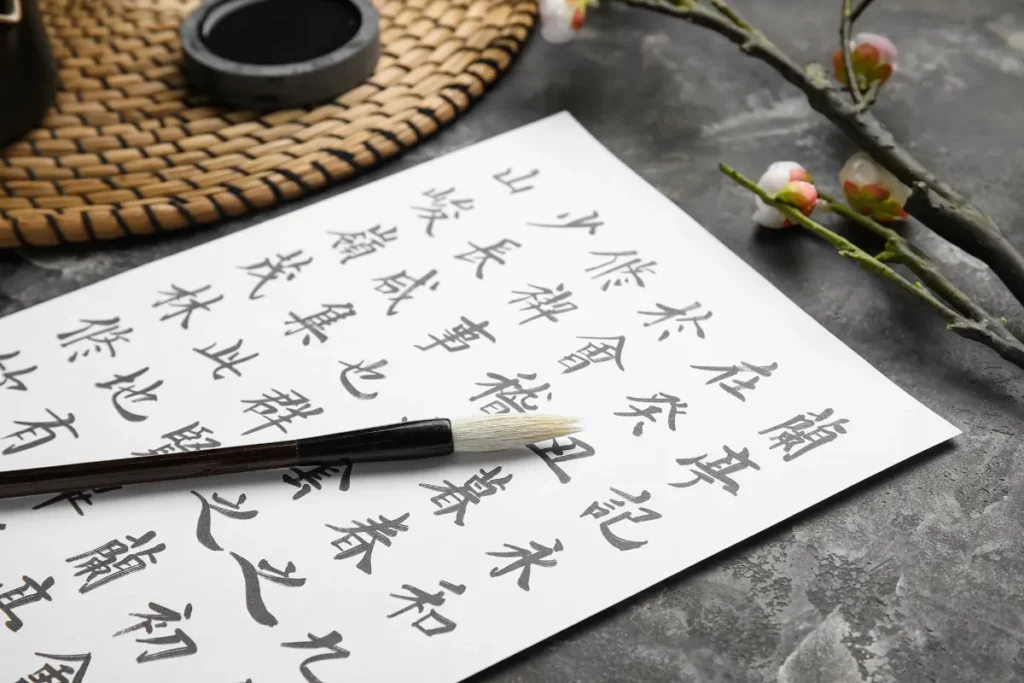 蘭亭記永和九
在癸丑暮春之初會
於會稽之蘭
修禊事也群賢畢
少長咸集此地有
山峻嶺茂林修竹